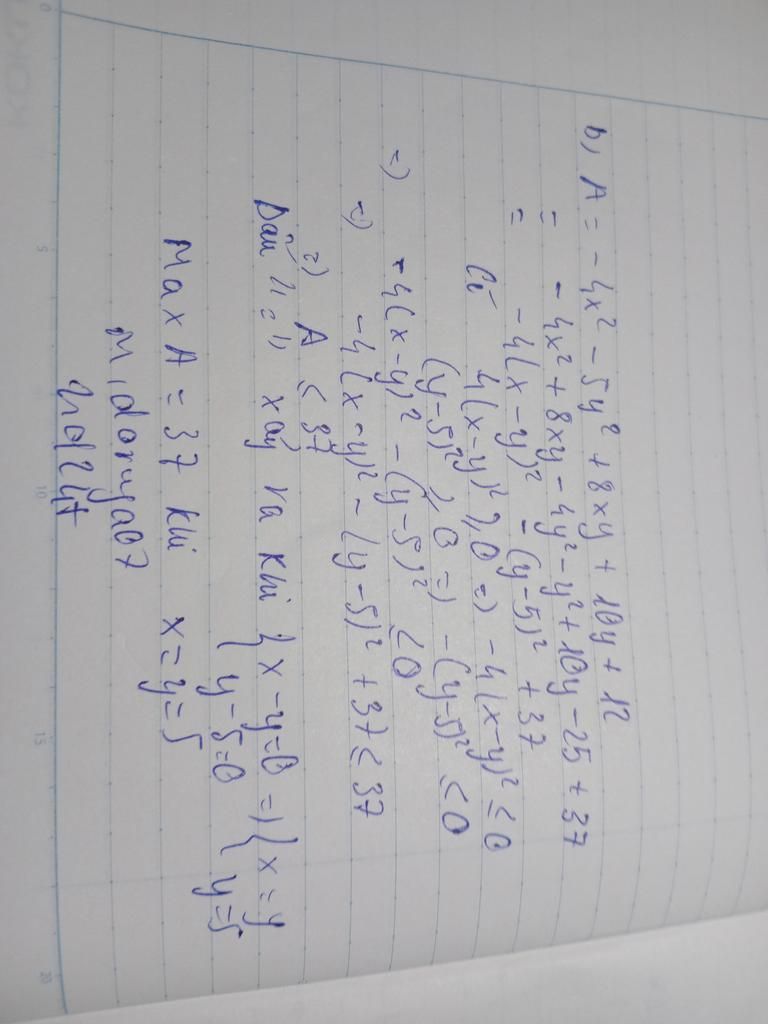 b, A = -4x² - 5y² + 8xy + 10y + 12
= -4x² + 8xy - 4y² - y² + 10y - 25 + 37
= -4(x-y)² - (y-5)² + 37
Có 4(x-y)² ≥ 0 => -4(x-y)² ≤ 0
(y-5)² ≥ 0 => -(y-5)² ≤ 0
=> -4(x-y)² - (y-5)² ≤ 0
=> -4(x-y)² - (y-5)² + 37 ≤ 37
=> A ≤ 37
Dấu "=" xảy ra khi { x-y=0 => { x=y
{ y-5=0 { y=5
Max A = 37 khi x=y=5